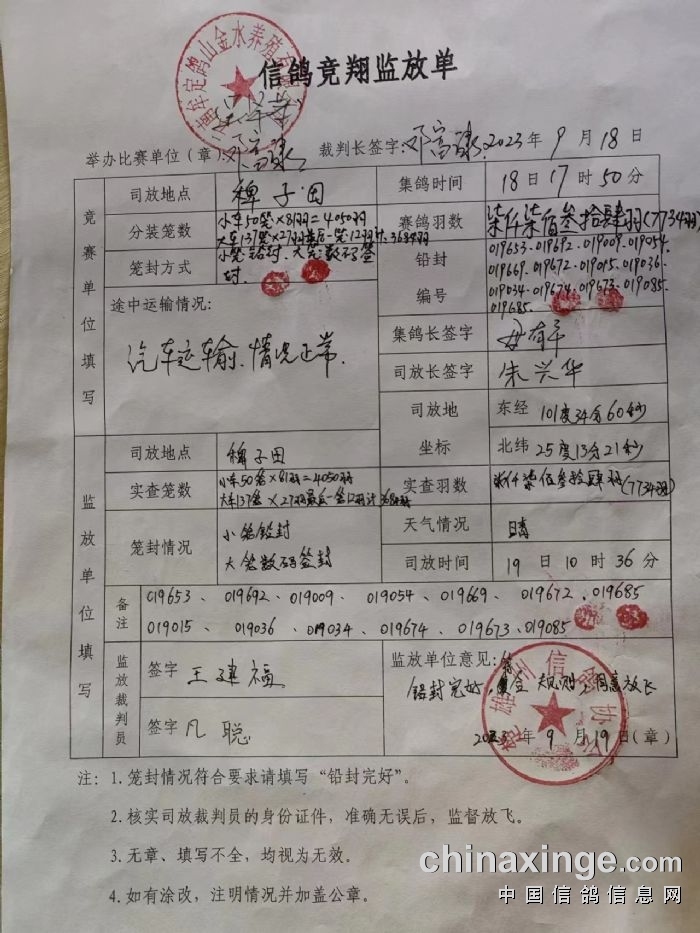 信鸽竞翔监放单
举办比赛单位（章）： 裁判长签字： 2023年9月18日
竞赛单位填写
司放地点 稗子田 集鸽时间 18日17时50分
分装笼数 小车50笼×81羽=4050羽 赛鸽羽数 柒仟柒佰叁拾肆羽(7734羽)
大车137笼×27羽最后一笼12羽计3684羽
笼封方式 小笼铅封、大笼数码签封.
铅封编号 019653、019692、019009、019054、
019669、019672、019015、019036、
019034、019674、019673、019085
019685.
途中运输情况：
汽车运输、情况正常.
集鸽长签字
司放长签字 朱兴华
司放地坐标 东经 101度34分60秒
北纬 25度13分21秒
监放单位填写
司放地点 稗子田
实查笼数 小车50笼×81羽=4050羽 实查羽数 柒仟柒佰叁拾肆羽(7734羽)
大车137笼×27羽最后一笼12羽计3684羽
笼封情况 小笼铅封 天气情况 晴
大笼数码签封 司放时间 19日10时36分
备注 019653、019692、019009、019054、019669、019672、019685
019015、019036、019034、019674、019673、019085
监放裁判员
签字 王建福 监放单位意见：
签字 凡聪 铅封完好，符合规则，同意放飞
2023年9月19日（章）
注：1. 笼封情况符合要求请填写“铅封完好”。
2. 核实司放裁判员的身份证件，准确无误后，监督放飞。
3. 无章、填写不全，均视为无效。
4. 如有涂改，注明情况并加盖公章。
chinaxinge.com
中国信鸽信息网